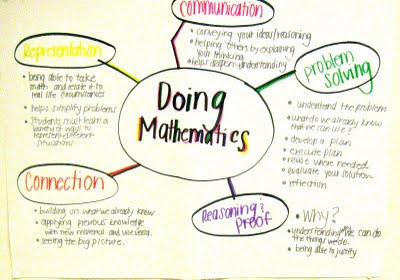 Communication
• conveying your ideas/reasoning
• helping others by explaining
your thinking
• helps deepen understanding
Representation
• being able to take
math and relate it to
real life circumstances
• helps simplify problems
• Students must learn a
variety of ways to
represent different
situations
Doing
Mathematics
problem
solving
• understand the problem
• what do we already know
that we can use?
• develop a plan
• execute plan
• revise where needed
• evaluate your solution
• reflection
Connection
• building on what we already know
• applying previous knowledge
with new material and vice versa.
• seeing the big picture.
Reasoning &
Proof
• Why?
• understanding we can do
the things we do.
• being able to justify